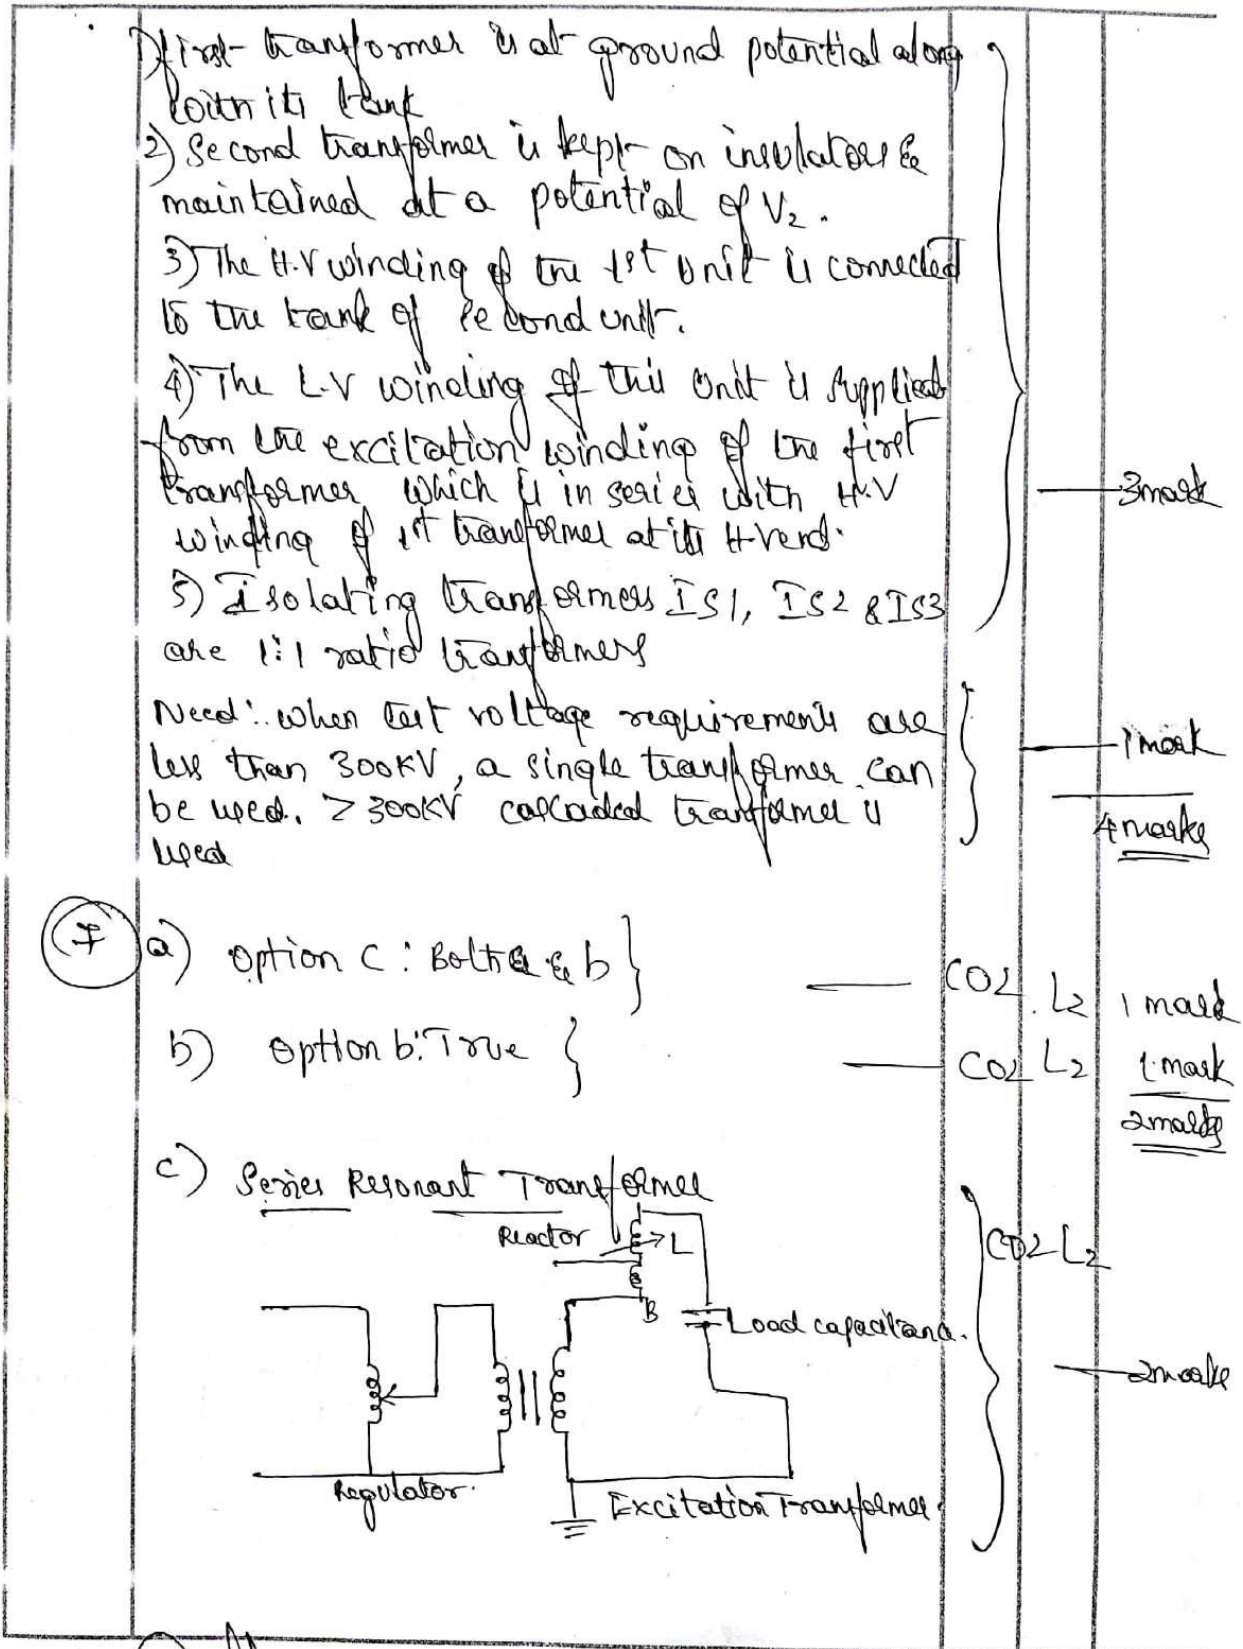 1) first transformer is at ground potential along
with its tank
2) Second transformer is kept on insulators &
maintained at a potential of V2.
3) The H.V winding of the 1st unit is connected
to the tank of second unit.
4) The L.V winding of this unit is supplied
from the excitation winding of the first
transformer which is in series with H.V
winding of 1st transformer at its H.V end.
3 mark
5) Isolating transformers IS1, IS2 & IS3
are 1:1 ratio transformers
Need: when test voltage requirements are
less than 300KV, a single transformer can
1 mark
be used. > 300KV cascaded transformer is
4 marks
used
7 a) Option C: Both a & b CO2 L2 1 mark
b) Option b: True CO2 L2 1 mark
2 marks
c) Series Resonant Transformer
Reactor L CO2 L2
B Load capacitance.
2 marks
Regulator.
Excitation Transformer.